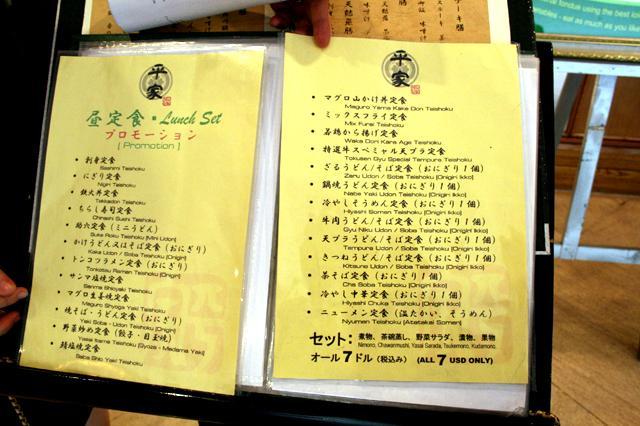 平家
昼定食・Lunch Set
プロモーション
[ Promotion ]
• 刺身定食
Sashimi Teishoku
• にぎり定食
Nigiri Teishoku
• 鉄火丼定食
Tekkadon Teishoku
• ちらし寿司定食
Chirashi Sushi Teishoku
• 助六定食 (ミニうどん)
Suke Roku Teishoku [Mini Udon]
• かけうどん又はそば定食 (おにぎり)
Kake Udon / Soba Teishoku [Onigiri]
• トンコツラメン定食 (おにぎり)
Tonkotsu Ramen Teishoku [Onigiri]
• サンマ塩焼定食
Sanma Shioyaki Teishoku
• マグロ生姜焼定食
Maguro Shyoga Yaki Teishoku
• 焼そば・うどん定食 (おにぎり)
Yaki Soba - Udon Teishoku [Onigiri]
• 野菜炒め定食 (餃子・目玉焼)
Yasai Itame Teishoku [Gyoza - Medama Yaki]
• 鯖塩焼定食
Saba Shio Yaki Teishoku
平家
• マグロ山かけ丼定食
Maguro Yama Kake Don Teishoku
• ミックスフライ定食
Mix Furai Teishoku
• 若鶏から揚げ定食
Waka Dori Kara Age Teishoku
• 特選牛スペシャル天プラ定食
Tokusen Gyu Special Tempura Teishoku
• ざるうどん/そば定食 (おにぎり1個)
Zaru Udon / Soba Teishoku [Onigiri Ikko]
• 鍋焼うどん定食 (おにぎり1個)
Nabe Yaki Udon Teishoku [Onigiri Ikko]
• 冷やしそうめん定食 (おにぎり1個)
Hiyashi Somen Teishoku [Onigiri Ikko]
• 牛肉うどん/そば定食 (おにぎり1個)
Gyu Niku Udon / Soba Teishoku [Onigiri Ikko]
• 天プラうどん/そば定食 (おにぎり1個)
Tempura Udon / Soba Teishoku [Onigiri Ikko]
• きつねうどん/そば定食 (おにぎり1個)
Kitsune Udon / Soba Teishoku [Onigiri Ikko]
• 茶そば定食 (おにぎり1個)
Cha Soba Teishoku [Onigiri Ikko]
• 冷やし中華定食 (おにぎり1個)
Hiyashi Chuka Teishoku [Onigiri Ikko]
• ニューメン定食 (温たかい、そうめん)
Nyumen Teishoku [Atatakai Somen]
セット: 煮物、茶碗蒸し、野菜サラダ、漬物、果物
Nimono, Chawanmushi, Yasai Sarada, Tsukemono, Kudamono.
オール7ドル (税込み) (ALL 7 USD ONLY)
fondue using the best
- eat as much as you like